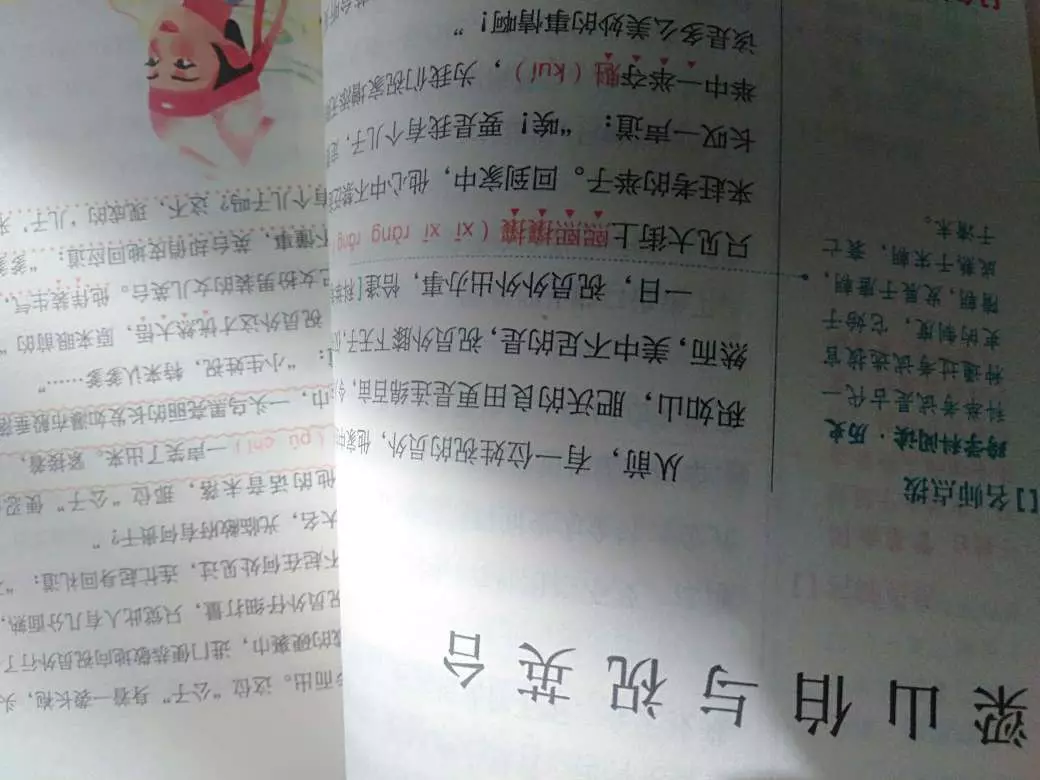 梁山伯与祝英台
名师点拨
跨学科阅读·历史
科举考试是古代一
种通过考试选拔官
吏的制度，它始于
隋朝，发展于唐朝，
成熟于宋朝，衰亡
于清末。
从前，有一位姓祝的员外，他家
积如山，肥沃的良田更是连绵百亩，
然而，美中不足的是，祝员外膝下无子，
一日，祝员外外出办事，恰逢
只见大街上熙熙攘攘（xī xī rǎng rǎng
来赶考的举子。回到家中，他心中不禁
长叹一声道：“唉！要是我有个儿子，
举中一举夺魁（kuí），为我们祝家增添
该是多么美妙的事情啊！”
而出。这位“公子”身着一袭长袍，头
的硬裹巾，进门便恭敬地向祝员外行了
员外仔细打量，只觉此人有几分面熟，
不起在何处见过，连忙起身回礼道：“
大名，光临敝府有何贵干？”
他的话音未落，那位“公子”便忍
（pū chī）一声笑了出来。紧接着，
巾，一头乌黑亮丽的长发如瀑布般垂落
“小生姓祝，特来认爹爹……”
祝员外这才恍然大悟，原来眼前的“
女扮男装的女儿英台。他佯装生气，
不懂事，英台却俏皮地回应道：“爹
有个儿子吗？这不，现成的‘儿子’来